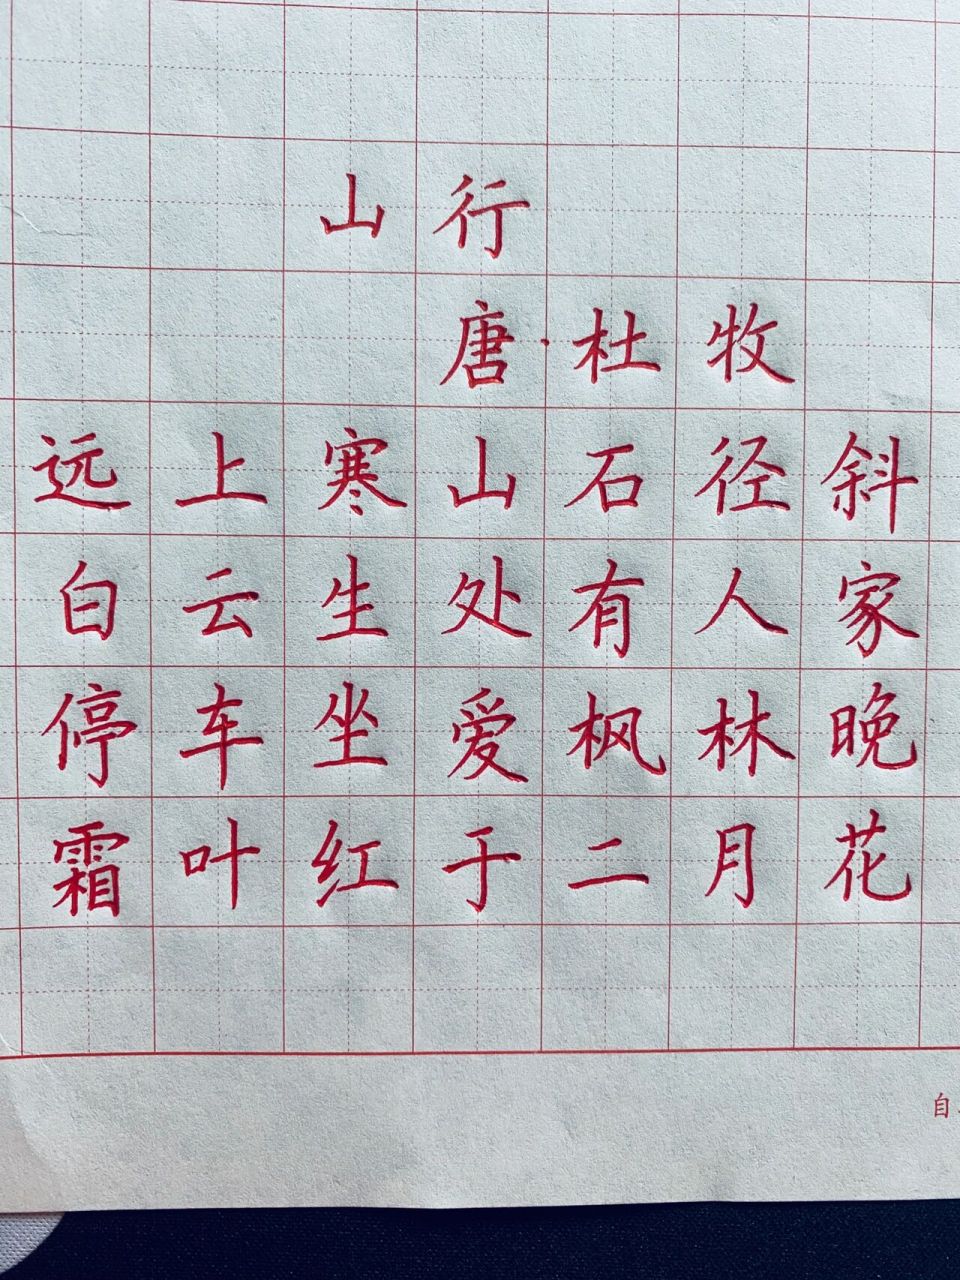 山行
唐·杜牧
远上寒山石径斜
白云生处有人家
停车坐爱枫林晚
霜叶红于二月花
自